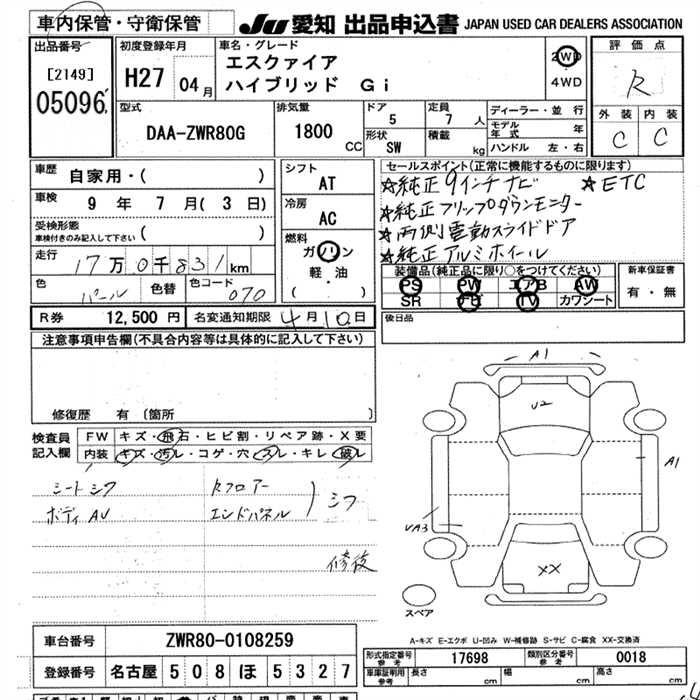 車内保管・守衛保管
JU 愛知 出品申込書 JAPAN USED CAR DEALERS ASSOCIATION
出品番号
[2149]
05096
初度登録年月
H27 04月
車名・グレード
エスクァイア
ハイブリッド Gi
2WD
4WD
評価点
R
外装 内装
C C
型式
DAA-ZWR80G
排気量
1800 CC
ドア
5
定員
7 人
形状
SW
積載
kg
ディーラー・並行
モデル年式 年
ハンドル 左・右
車歴
自家用・( )
車検
9 年 7 月( 3 日)
受検形態
車検付きのみ記入して下さい ( )
走行
17万0千831km
色
パール
色替
色コード
070
シフト
AT
冷房
AC
燃料
ガソリン
軽・油
( )
セールスポイント(正常に機能するものに限ります)
☆純正9インチナビ ☆ETC
☆純正フリップダウンモニター
☆両側電動スライドドア
☆純正アルミホイール
装備品(純正品に限り○をつけてください)
PS PW エアB AW
SR ナビ TV カワシート
新車保証書
有・無
R券 12,500円 名変通知期限 4月10日
後日品
注意事項申告欄(不具合内容等は具体的に記入して下さい)
修復歴 有 〔箇所 〕
検査員記入欄
FW キズ・飛石・ヒビ割・リペア跡・X要
内装 キズ・汚レ・コゲ・穴・スレ・キレ・破レ
シートシワ
ボディAU
Rフロアー
エンドパネル
シワ
修復
A1
U2
A1
UA3
XX
スペア
A-キズ E-エクボ U-凹み W-補修跡 S-サビ C-腐食 XX-交換済
車台番号 ZWR80-0108259
登録番号 名古屋 508 ほ 5327
形式指定番号 参考 17698 類別区分番号 参考 0018
車庫証明用 参考 長さ cm 幅 cm 高さ cm